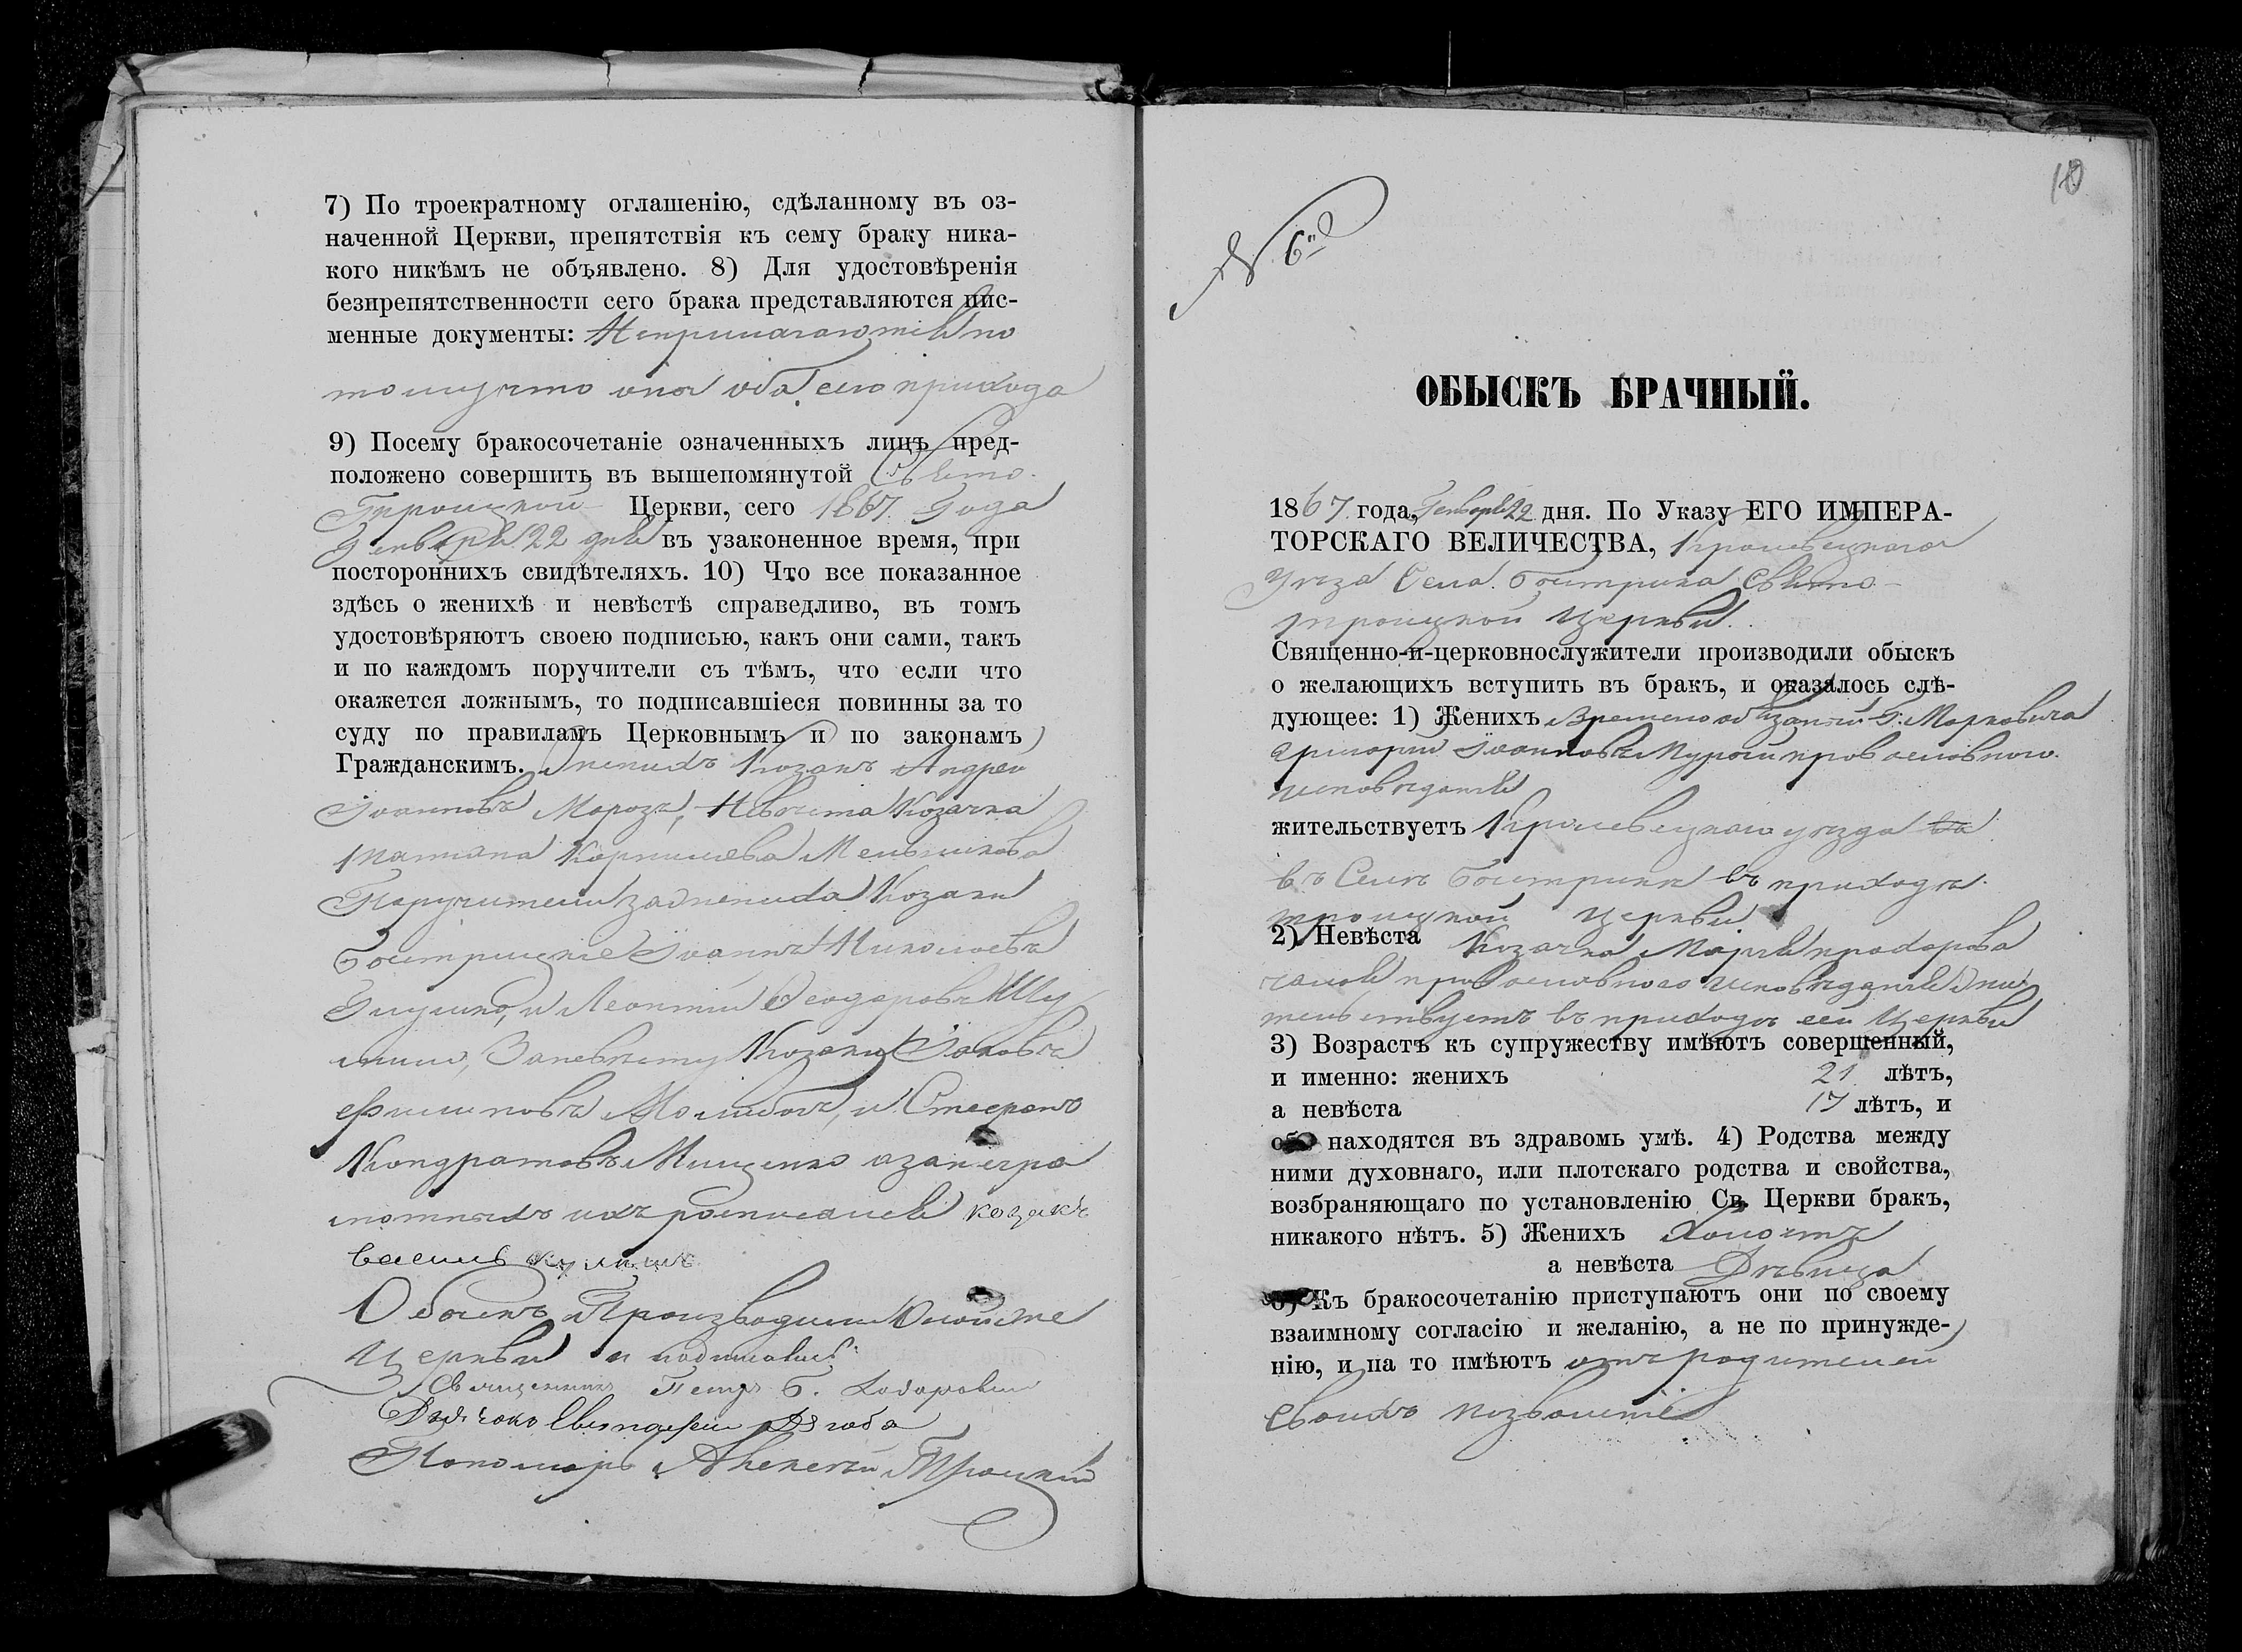 7) По троекратному оглашенію, сдѣланному въ оз-
наченной Церкви, препятствія къ сему браку ника-
кого никѣмъ не объявлено. 8) Для удостовѣренія
безпрепятственности сего брака представляются пис-
менные документы: Неприлагаются по
тому что они оба сего прихода
9) Посему бракосочетаніе означенныхъ лицъ пред-
положено совершить въ вышепомянутой Свято-
Троицкой Церкви, сего 1867 Года
Генваря 22 дня въ узаконенное время, при
постороннихъ свидѣтеляхъ. 10) Что все показанное
здѣсь о женихѣ и невѣстѣ справедливо, въ томъ
удостовѣряютъ своею подписью, какъ они сами, такъ
и по каждомъ поручители съ тѣмъ, что если что
окажется ложнымъ, то подписавшіеся повинны за то
суду по правиламъ Церковнымъ и по законамъ
Гражданскимъ. Женихъ Козакъ Андрей
Іоанновъ Морозъ, Невѣста Козачка
Татіяна Корнилева Мельникова
Поручители за жениха Козаки
Іоаннъ Николаевъ
и Леонтій Феодоровъ Шу
За невѣсту Козаки Іаковъ
Филиповъ и Стефанъ
Кондратовъ Мищенко а за негра
мотныхъ ихъ росписался козакъ
василь
Обыскъ Производили Оной же
Церкви и подписались
Священникъ Петръ
Дьячокъ
Пономарь Алексѣй Троцкій
10
№ 6й
ОБЫСКЪ БРАЧНЫЙ.
1867 года, Генваря 22 дня. По Указу ЕГО ИМПЕРА-
ТОРСКАГО ВЕЛИЧЕСТВА, Кролевецкаго
Уѣзда Села Быстрика Свято-
троицкой Церкви
Священно-и-церковнослужители производили обыскъ
о желающихъ вступить въ бракъ, и оказалось слѣ-
дующее: 1) Женихъ Временно обязаный Г. Марковича
Григорій Іоанновъ православного
исповѣданія
жительствуетъ Кролевецкаго уѣзда
въ Селѣ Быстрикѣ въ приходѣ
троицкой Церкви
2) Невѣста Козачка Марія прохорова
православного исповѣданія жи
тельствуетъ въ приходѣ сей Церкви
3) Возрастъ къ супружеству имѣютъ совершенный,
и именно: женихъ 21 лѣтъ,
а невѣста 17 лѣтъ, и
оба находятся въ здравомъ умѣ. 4) Родства между
ними духовнаго, или плотскаго родства и свойства,
возбраняющаго по установленію Св. Церкви бракъ,
никакого нѣтъ. 5) Женихъ Холостъ
а невѣста Дѣвица
6) Къ бракосочетанію приступаютъ они по своему
взаимному согласію и желанію, а не по принужде-
нію, и на то имѣютъ отъ родителей
своихъ позволеніе